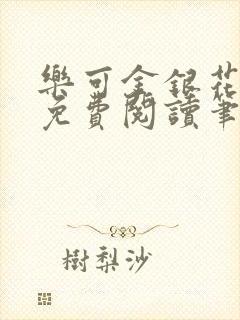 樂可金銀花
免費閱讀筆
樹梨沙